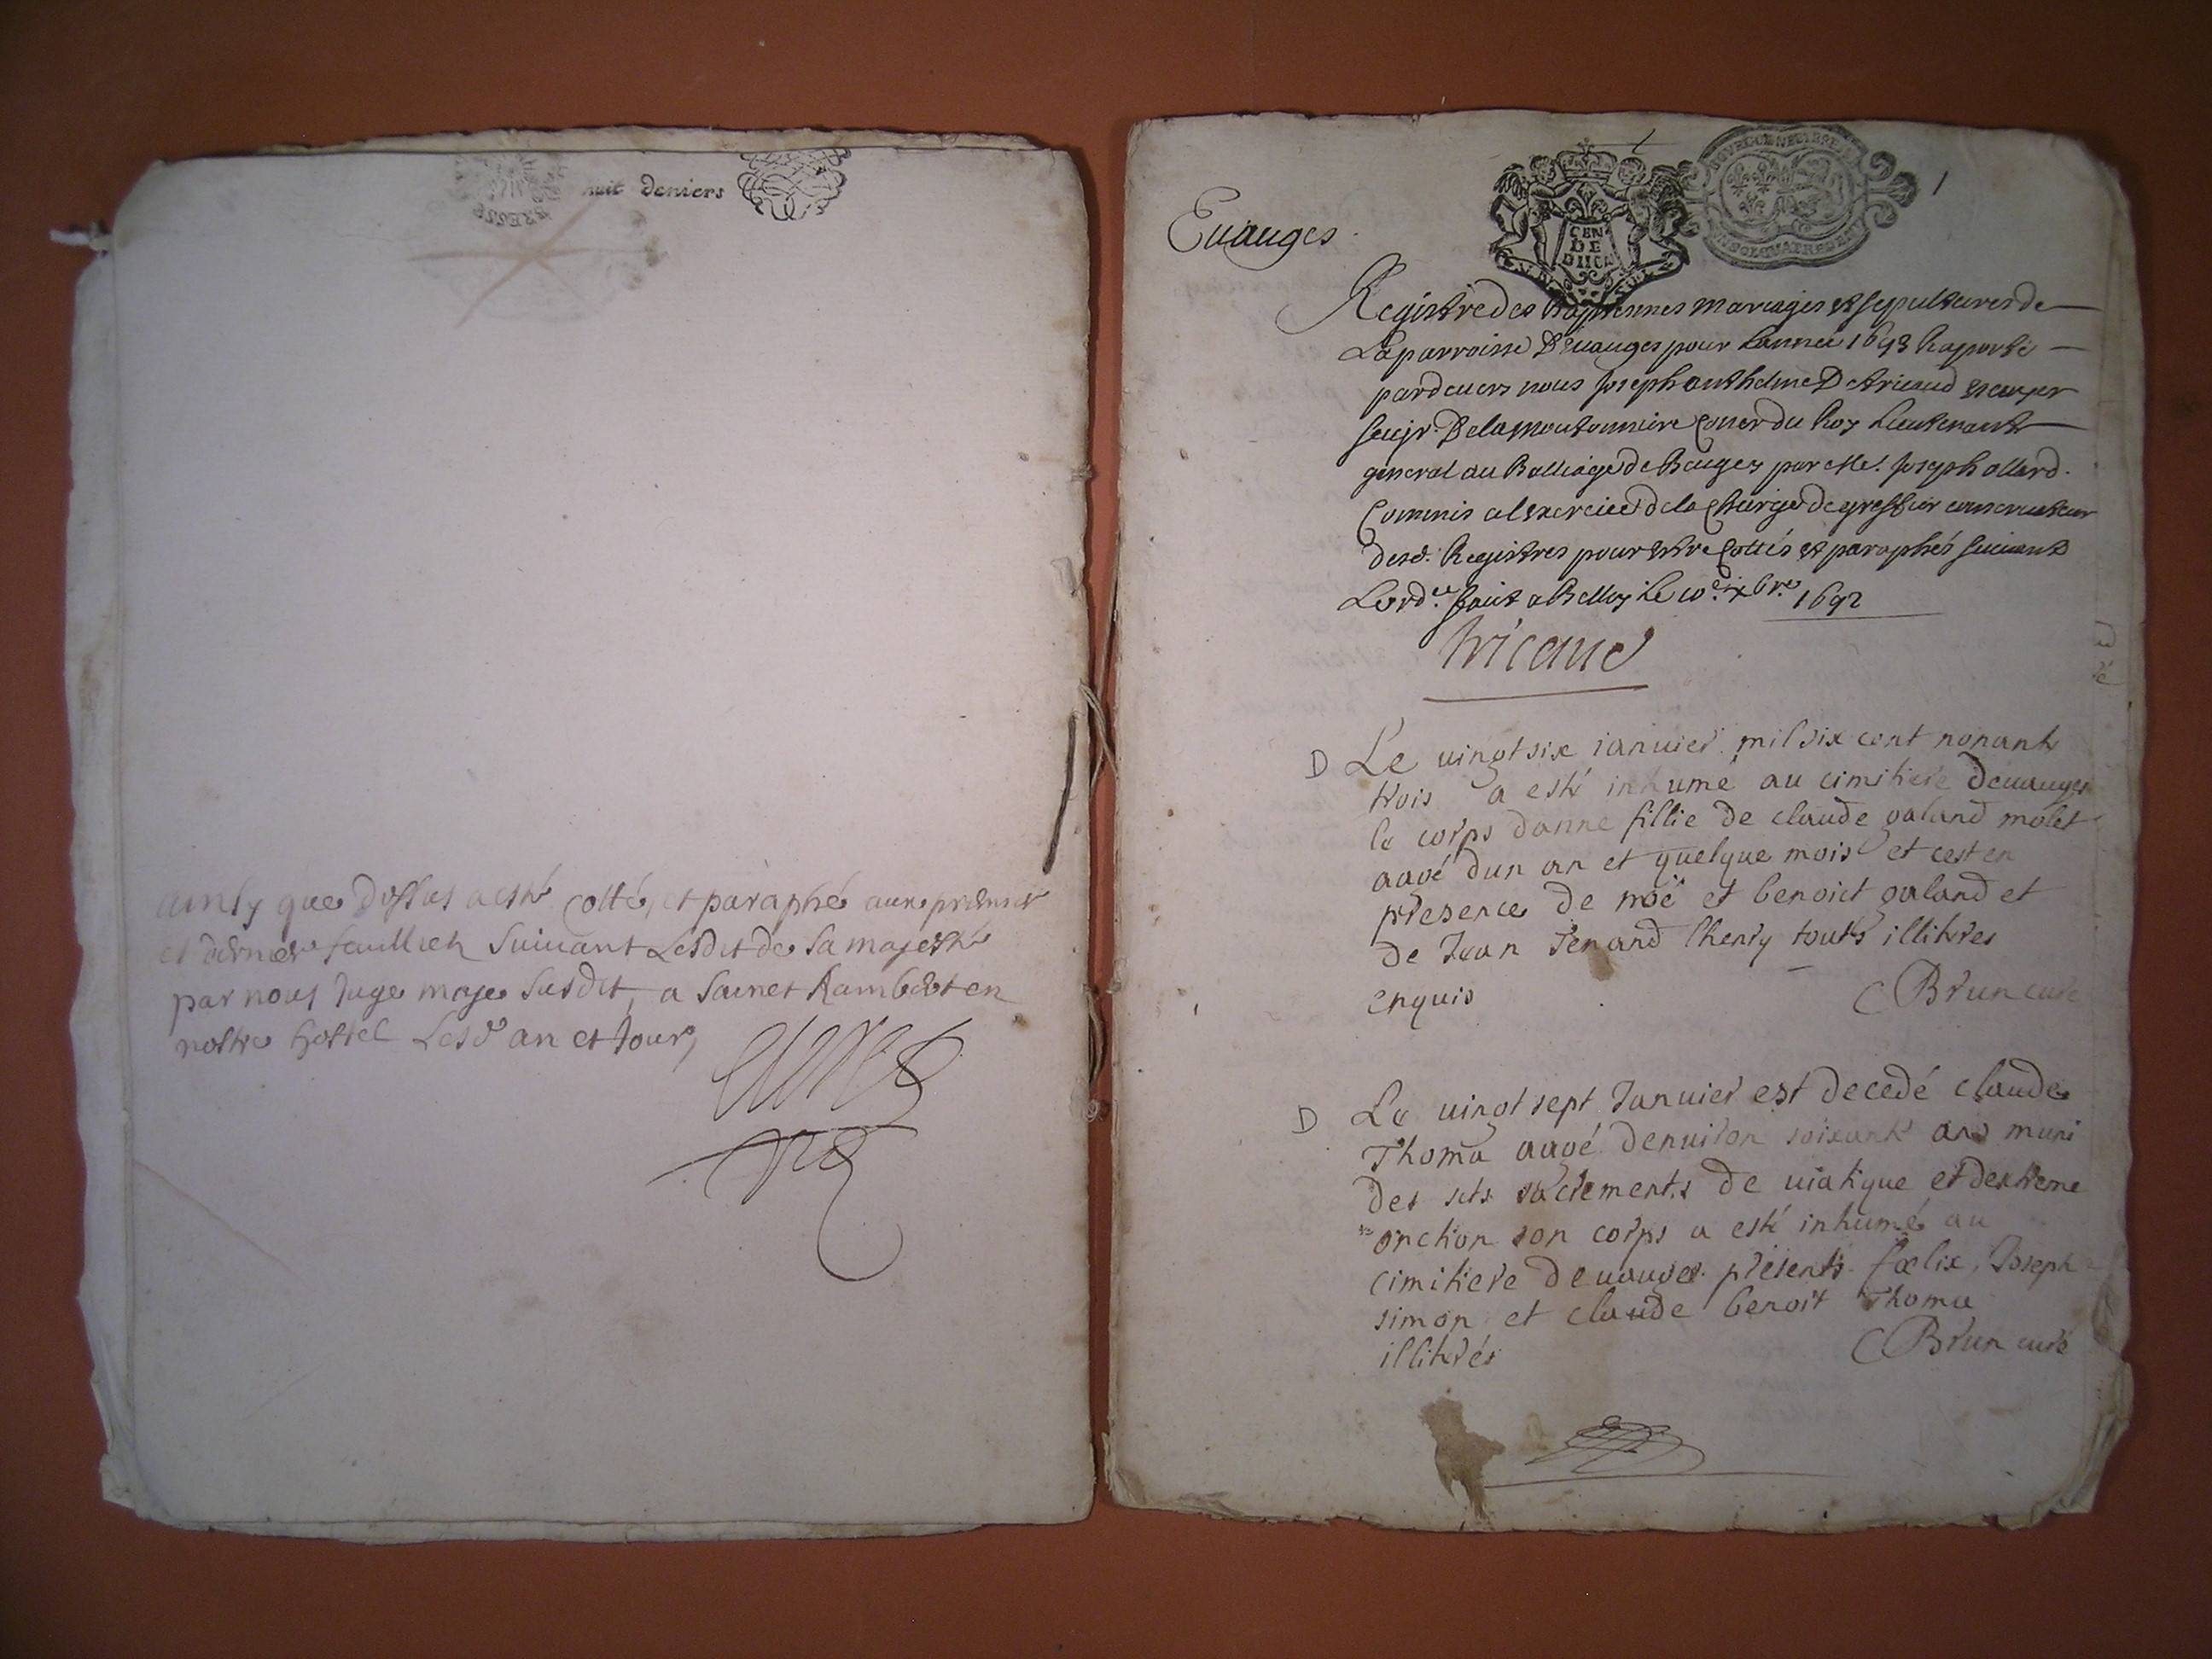 huit deniers
ainsy que dessus a esté cotté, et paraphé aux premier
et dernier feuilliet suivant Lesdit de sa majesté
par nous Juge maje susdit, a sainct Rambert en
nostre hostel Lesd an et Jour,
1
Euauges
GEN
DE
Registre des Baptesmes mariages et sepultures de
La parroisse D'euauges pour Lannee 1693 Raporté
pardeuers nous Joseph anthelme De tricaud escuyer
seigr. De la moutonniere Coner du Roy Lieutenant
general au Balliage de Beugey par Me. Joseph allard.
Commis a lexercice de la Charge de greffier conseruateur
desd. Registres pour estre Cottés et paraphés suiuant
Lord.ce fait a Belley Le 10e. xbre. 1692
tricaud
D Le uingtsix ianuier mil six cent nonante
trois a esté inhumé au cimitiere deuauges
le corps danne fillie de claude galand molet
aagé dun an et quelque mois et cest en
presence de moë et benoict galand et
de Jean Tenand Chenly touts illitres
enquis C Brun curé
D Le uingt sept Januier est decedé claude
Thoma aagé denuiron soixante ans muni
des sts sacrements de uiatique et dextreme
onction son corps a esté inhumé au
cimitiere deuauges presents foelix, Joseph
simon et claude benoit Thoma
illitrés C Brun curé